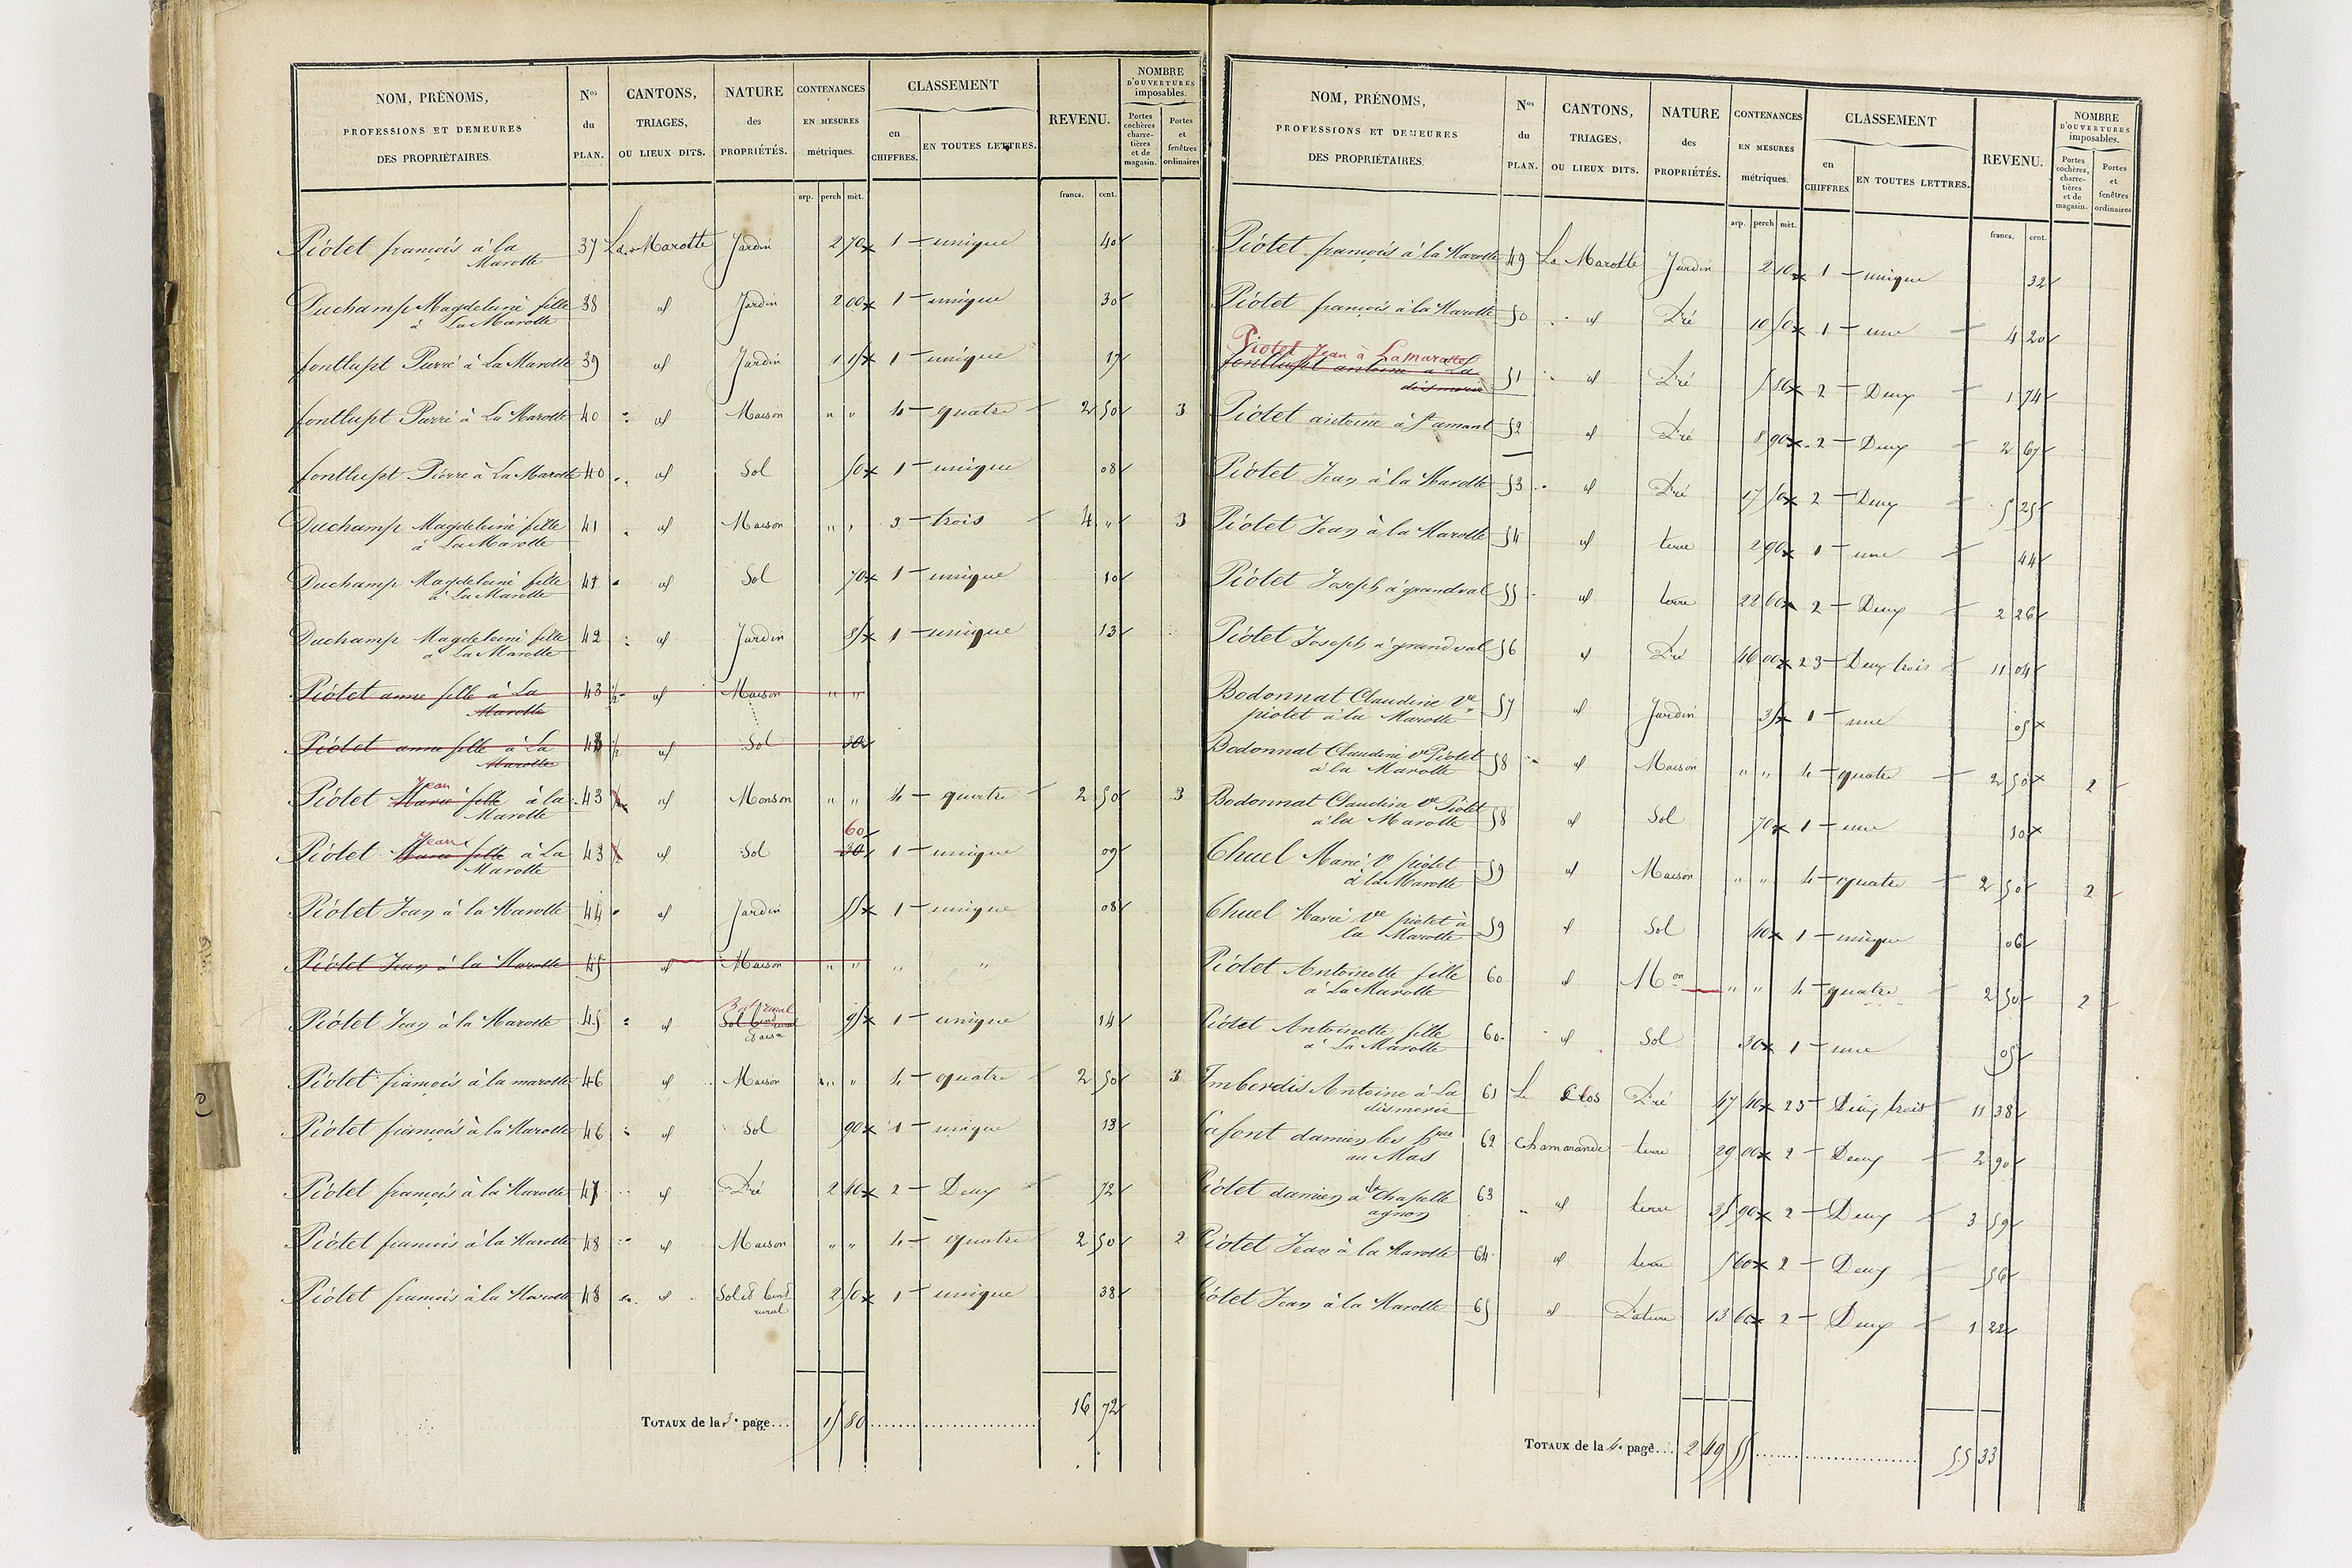 NOM, PRÉNOMS, PROFESSIONS ET DEMEURES DES PROPRIÉTAIRES. Nos du PLAN. CANTONS, TRIAGES, OU LIEUX DITS. NATURE des PROPRIÉTÉS. CONTENANCES EN MESURES métriques. CLASSEMENT en CHIFFRES. EN TOUTES LETTRES. REVENU. NOMBRE D'OUVERTURES imposables. Portes cochères charretières et de magasin. Portes et fenêtres ordinaires
arp. perch mèt. francs. cent.
Piotet françois à la Marotte 37 La Marotte Jardin 2 70 1 unique 40
Duchamp Magdeleine fille à La Marotte 38 id Jardin 2 00 1 unique 30
fontlupt Pierre à La Marotte 39 id Jardin 1 15 1 unique 17
fontlupt Pierre à La Marotte 40 id Maison " " 4 quatre 2 50 3
fontlupt Pierre à La Marotte 40 id Sol 50 1 unique 08
Duchamp Magdeleine fille à La Marotte 41 id Maison " " 3 trois 4 " 3
Duchamp Magdeleine fille à La Marotte 41 id Sol 70 1 unique 10
Duchamp Magdeleine fille à La Marotte 42 id Jardin 85 1 unique 13
Piotet anne fille à La Marotte 43 ½ id Maison " "
Piotet anne fille à La Marotte 43 ½ id Sol 30
Piotet Marie fille Jean à la Marotte 43 id Monson " " 4 quatre 2 50 3
Piotet Marie fille Jean à La Marotte 43 id Sol 30 60 1 unique 09
Piotet Jean à la Marotte 44 id Jardin 55 1 unique 08
Piotet Jean à la Marotte 45 id Maison " " " "
Piotet Jean à la Marotte 45 id Bat rural Sol 95 1 unique 14
Piotet françois à la marotte 46 id Maison " " 4 quatre 2 50 3
Piotet françois à la Marotte 46 id Sol 90 1 unique 13
Piotet françois à la Marotte 47 id Pré 2 40 2 Deux 72
Piotet françois à la Marotte 48 id Maison " " 4 quatre 2 50 2
Piotet françois à la Marotte 48 id Sol et bend rural 2 50 1 unique 38
TOTAUX de la 3e page... 15 80 16 72
NOM, PRÉNOMS, PROFESSIONS ET DEMEURES DES PROPRIÉTAIRES. Nos du PLAN. CANTONS, TRIAGES, OU LIEUX DITS. NATURE des PROPRIÉTÉS. CONTENANCES EN MESURES métriques. CLASSEMENT en CHIFFRES EN TOUTES LETTRES. REVENU. NOMBRE D'OUVERTURES imposables. Portes cochères, charretières et de magasin. Portes et fenêtres ordinaires
arp. perch mèt. francs. cent.
Piotet françois à la Marotte 49 La Marotte Jardin 2 10 1 unique 32
Piotet françois à la Marotte 50 id Pré 10 50 1 une 4 20
Piotet Jean à La marotte
fontlupt antoine à La dismerie 51 id Pré 5 80 2 Deux 1 74
Piotet antoine à St amant 52 id Pré 8 90 2 Deux 2 67
Piotet Jean à la Marotte 53 id Pré 17 50 2 Deux 5 25
Piotet Jean à la Marotte 54 id terre 2 90 1 une 44
Piotet Joseph à grandval 55 id terre 22 60 2 Deux 2 26
Piotet Joseph à grandval 56 id Pré 46 00 2 3 Deux trois 11 04
Bodonnat Claudine ve piotet à la Marotte 57 id Jardin 35 1 une 05
Bodonnat Claudine ve Piotet à la Marotte 58 id Maison " " 4 quatre 2 50 2
Bodonnat Claudine ve Piotet à la Marotte 58 id Sol 70 1 une 10
Chuel Marie ve piotet à la Marotte 59 id Maison " " 4 quatre 2 50 2
Chuel Marie ve piotet à la Marotte 59 id Sol 40 1 unique 06
Piotet Antoinette fille à La Marotte 60 id Mon " " 4 quatre 2 50 2
Piotet Antoinette fille à La Marotte 60 id Sol 30 1 une 05
Imberdis Antoine à La dismerie 61 Le Clos Pré 47 40 2 3 Deux trois 11 38
Lafont damien les au Mas 62 Chamarande terre 29 00 2 Deux 2 90
Piotet damien à la Chapelle agnon 63 id terre 35 90 2 Deux 3 59
Piotet Jean à la Marotte 64 id terre 5 60 2 Deux 56
Piotet Jean à la Marotte 65 id Pature 13 60 2 Deux 1 22
TOTAUX de la 4e page... 2 49 55 55 33